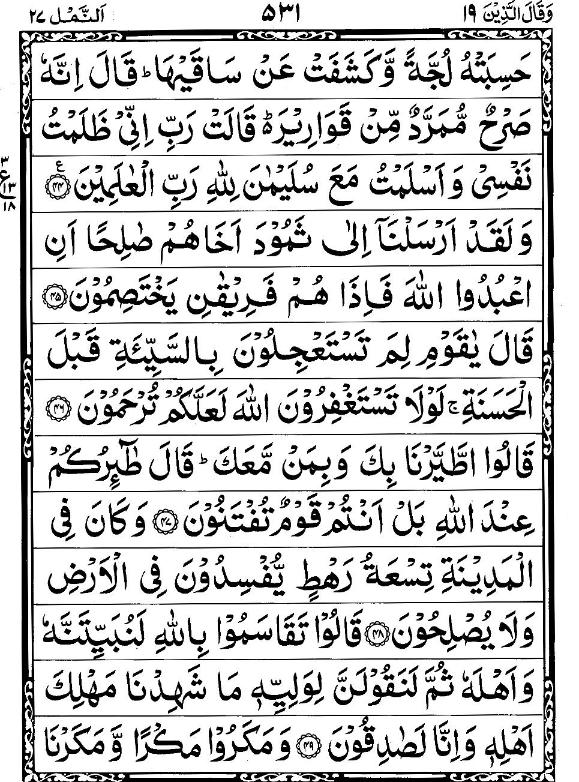 وَقَالَ الَّذِيْنَ ١٩ ۵۳۱ اَلنَّمْل ٢٧
حَسِبَتْهُ لُجَّةً وَّكَشَفَتْ عَنْ سَاقَيْهَا ؕ قَالَ اِنَّهٗ
صَرْحٌ مُّمَرَّدٌ مِّنْ قَوَارِيْرَ ؕ۬ قَالَتْ رَبِّ اِنِّيْ ظَلَمْتُ
نَفْسِيْ وَاَسْلَمْتُ مَعَ سُلَيْمٰنَ لِلّٰهِ رَبِّ الْعٰلَمِيْنَ ۴۴ ع
۳ ع ١٣ ١٨
وَلَقَدْ اَرْسَلْنَاۤ اِلٰى ثَمُوْدَ اَخَاهُمْ صٰلِحًا اَنِ
اعْبُدُوا اللّٰهَ فَاِذَا هُمْ فَرِيْقٰنِ يَخْتَصِمُوْنَ ۴۵
قَالَ يٰقَوْمِ لِمَ تَسْتَعْجِلُوْنَ بِالسَّيِّئَةِ قَبْلَ
الْحَسَنَةِ ۚ لَوْلَا تَسْتَغْفِرُوْنَ اللّٰهَ لَعَلَّكُمْ تُرْحَمُوْنَ ۴۶
قَالُوا اطَّيَّرْنَا بِكَ وَبِمَنْ مَّعَكَ ؕ قَالَ طٰٓئِرُكُمْ
عِنْدَ اللّٰهِ بَلْ اَنْتُمْ قَوْمٌ تُفْتَنُوْنَ ۴۷ وَكَانَ فِي
الْمَدِيْنَةِ تِسْعَةُ رَهْطٍ يُّفْسِدُوْنَ فِي الْاَرْضِ
وَلَا يُصْلِحُوْنَ ۴۸ قَالُوْا تَقَاسَمُوْا بِاللّٰهِ لَنُبَيِّتَنَّهٗ
وَاَهْلَهٗ ثُمَّ لَنَقُوْلَنَّ لِوَلِيِّهٖ مَا شَهِدْنَا مَهْلِكَ
اَهْلِهٖ وَاِنَّا لَصٰدِقُوْنَ ۴۹ وَمَكَرُوْا مَكْرًا وَّمَكَرْنَا